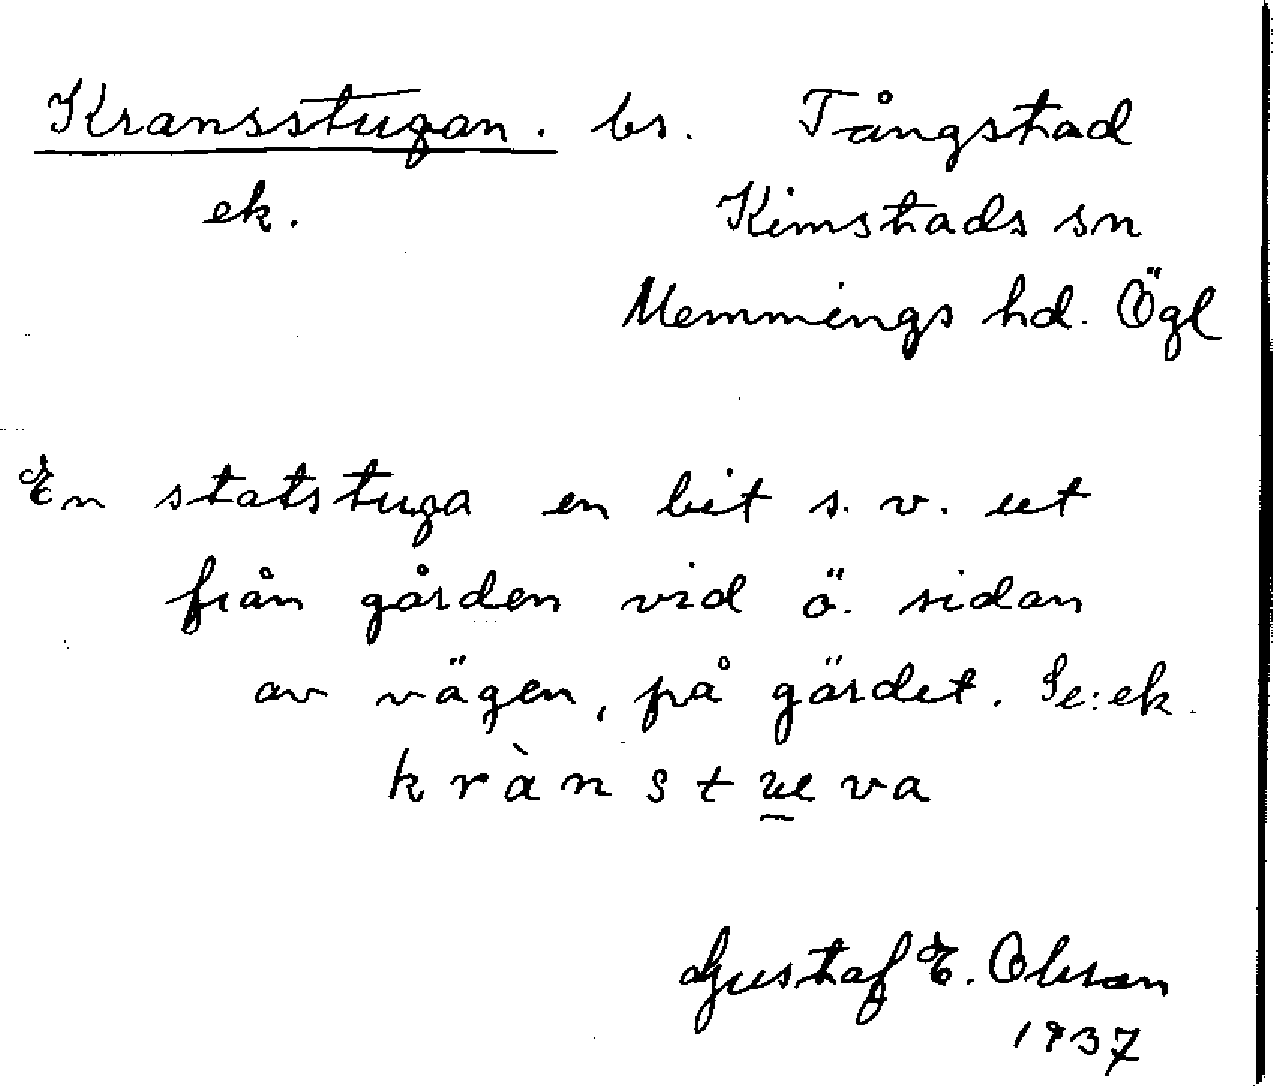 Kransstugan. bs. Tångstad
ek. Kimstads sn
Memmings hd. Ögl
En statstuga en bit s. v. ut
från gården vid ö. sidan
av vägen, på gärdet. Se: ek.
krànstueva
Gustaf E. Olsson
1937